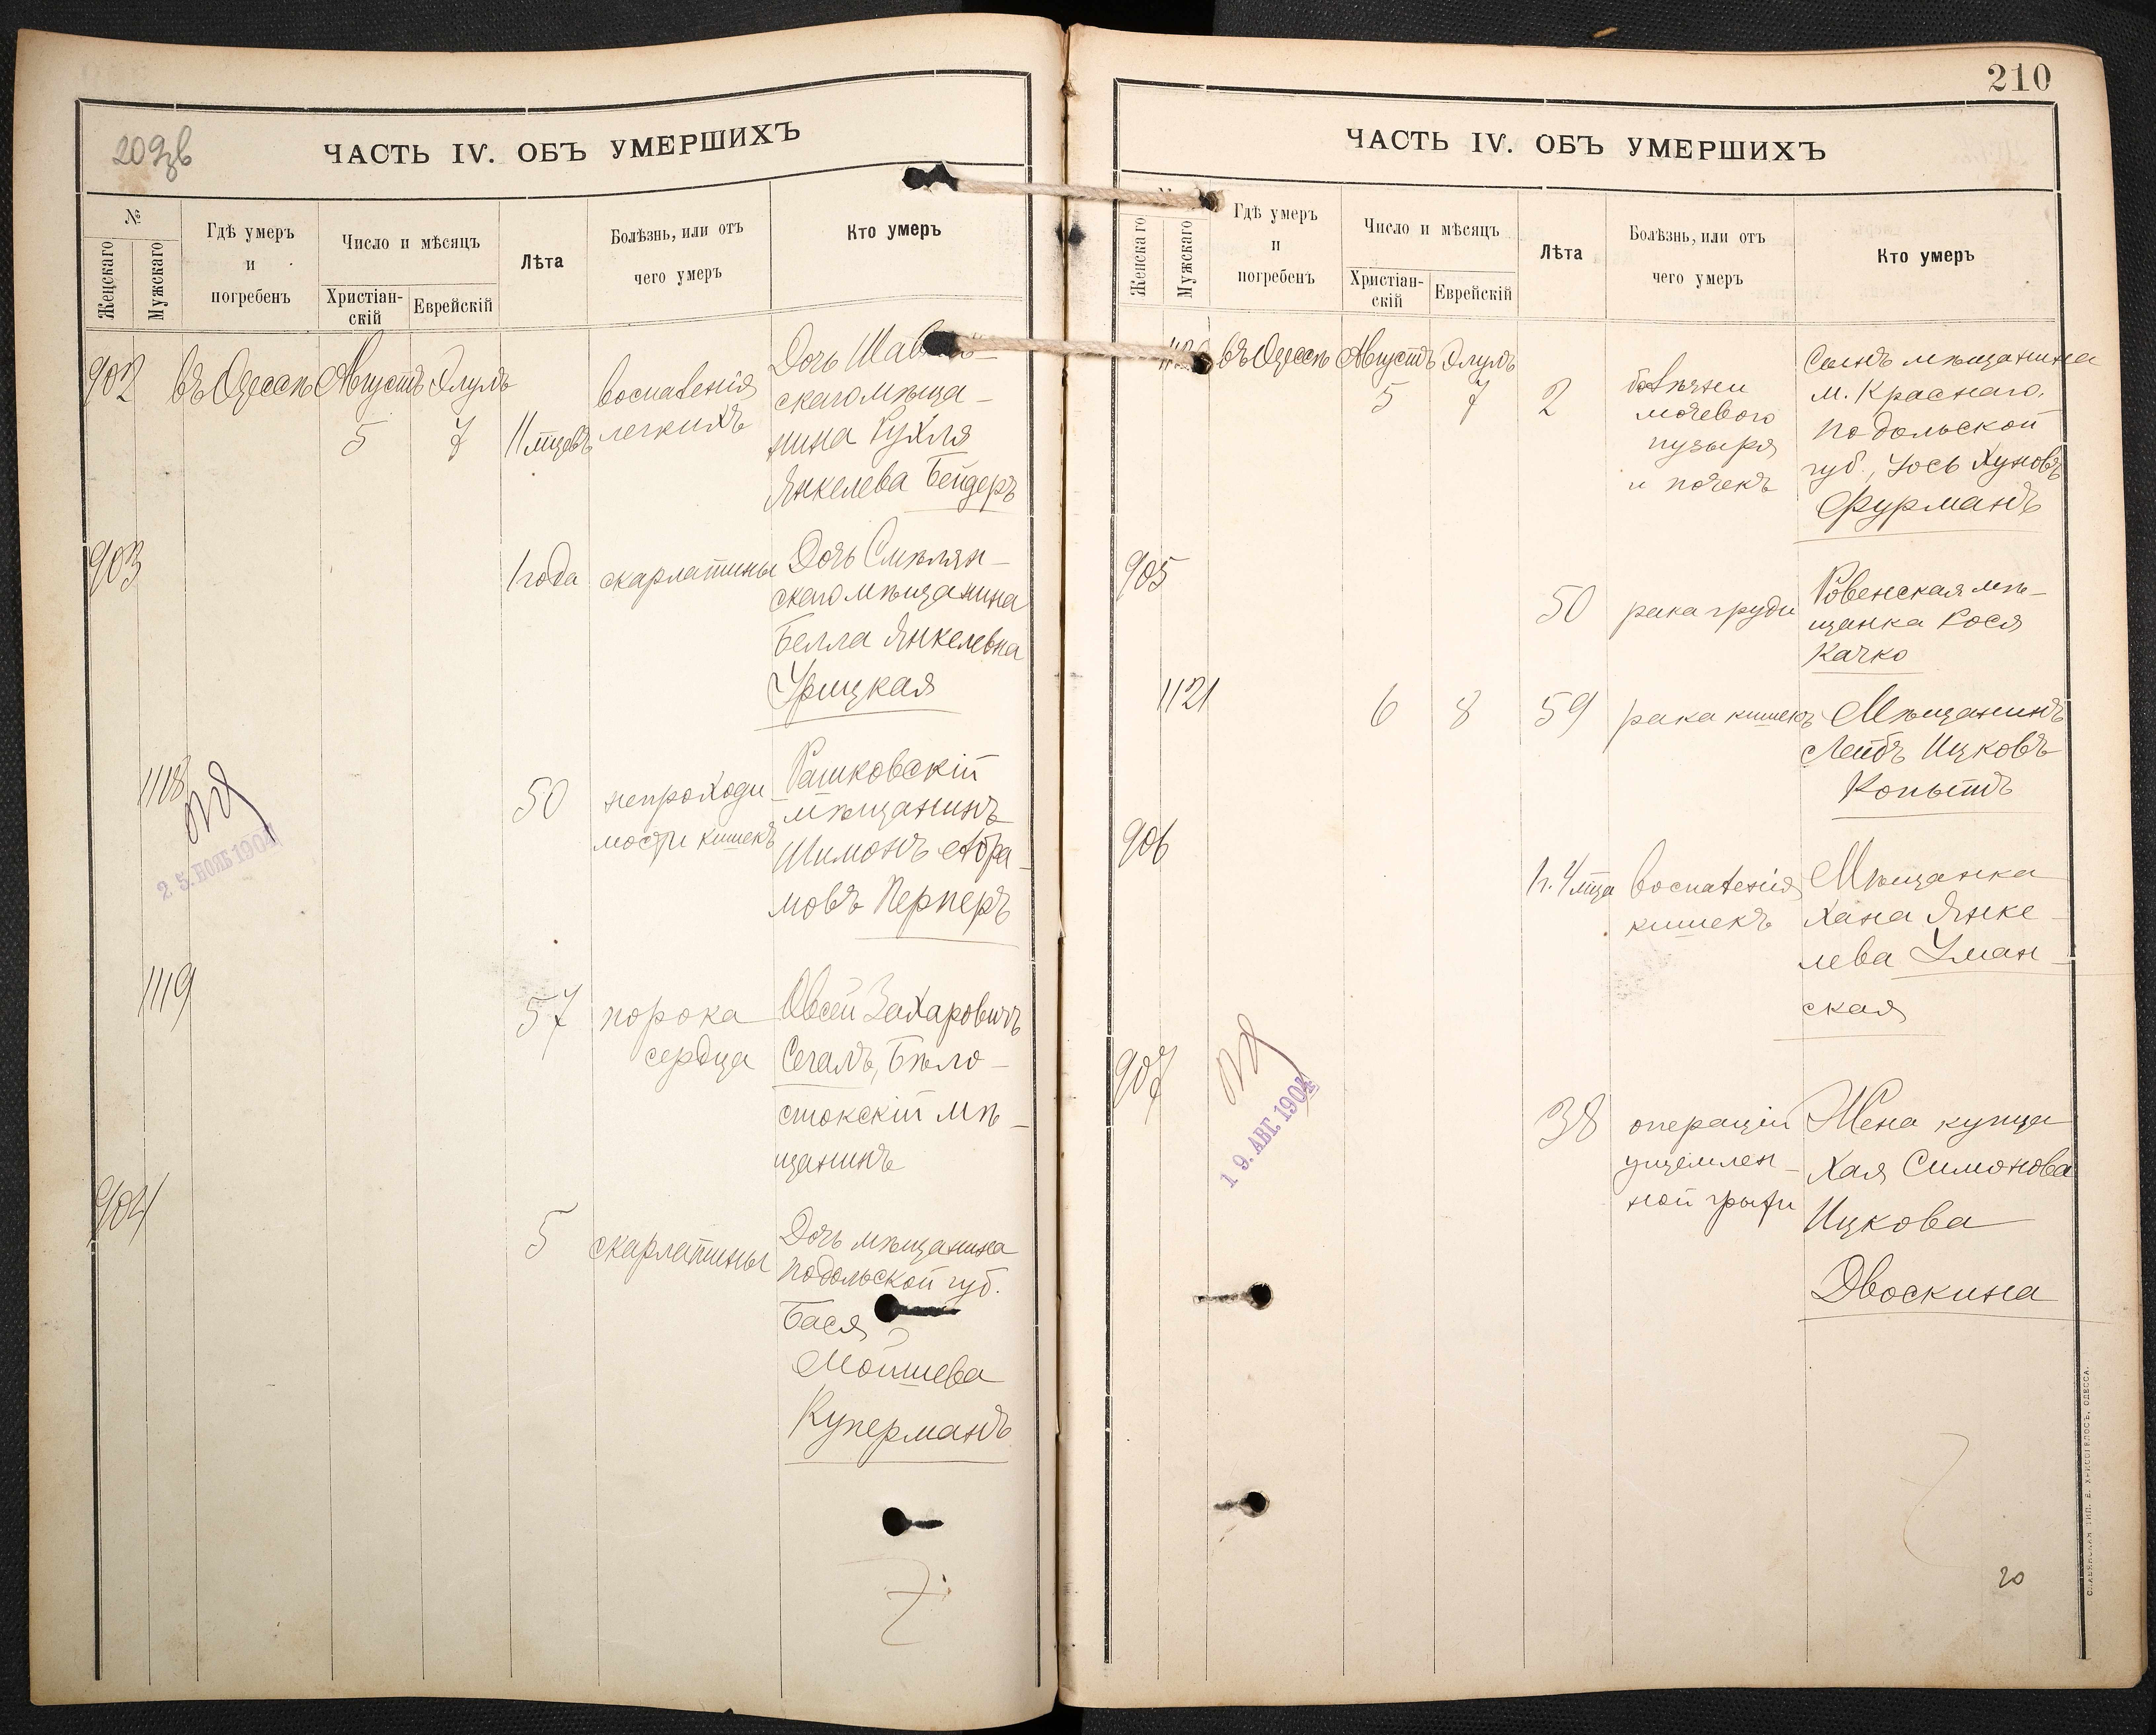 209 об
ЧАСТЬ IV. ОБЪ УМЕРШИХЪ
№
Женскаго
Мужскаго
Гдѣ умеръ
и
погребенъ
Число и мѣсяцъ
Христіан-
скій
Еврейскій
Лѣта
Болѣзнь, или отъ
чего умеръ
Кто умеръ
902 въ Одессѣ Августъ Элулъ
5 7 11 мцевъ
воспаленія
легкихъ
Дочь
скаго мѣща-
нина Рухля
Янкелева Бендеръ
903 1 года скарлатины
Дочь Смѣлян-
скаго мѣщанина
Белла Янкелевна
Урицкая
1118
25. НОЯБ 1904
50 непроходи-
мости кишекъ
Рашковскій
мѣщанинъ
Шимонъ Абра-
мовъ Перперъ
1119
57 порока
сердца
Овсей Захаровичъ
Сегалъ, Бѣло-
стокскій мѣ-
щанинъ
904
5 скарлатины
Дочь мѣщанина
Подольской губ.
Бася
Мошиева
Куперманъ
210
ЧАСТЬ IV. ОБЪ УМЕРШИХЪ
Женскаго
Мужскаго
Гдѣ умеръ
и
погребенъ
Число и мѣсяцъ
Христіан-
скій
Еврейскій
Лѣта
Болѣзнь, или отъ
чего умеръ
Кто умеръ
1120 въ Одессѣ Августъ Элулъ
5 7 2
болѣзни
мочевого
пузыря
и почекъ
Сынъ мѣщанина
м. Краснаго,
Подольской
губ., Іось Хуновъ
Фурманъ
905
50 рака груди
Ровенская мѣ-
щанка Рося
Качко
1121 6 8 59 рака кишекъ
Мѣщанинъ
Лейбъ Ицковъ
Копытъ
906
1 г. 4 мца воспаленія
кишекъ
Мѣщанка
Хана Янке-
лева Уман-
ская
907
19. АВГ. 1904
38 операціи
ущемлен-
ной грыжи
Жена купца
Хая Симонова
Ицкова
Двоскина
20
СЛАВЯНСКАЯ ТИП. Е. ХРИСОГЕЛОСЪ, ОДЕССА.